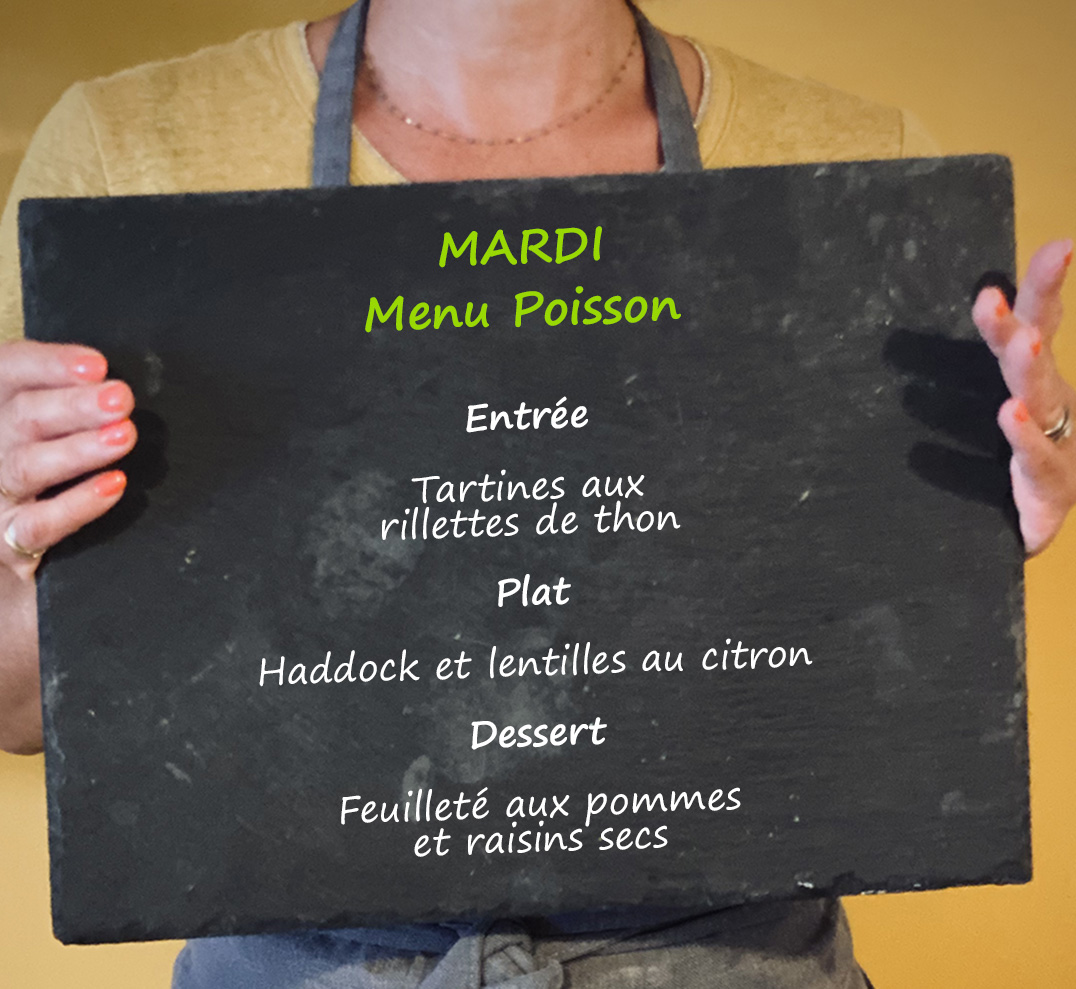 MARDI
Menu Poisson
Entrée
Tartines aux
rillettes de thon
Plat
Haddock et lentilles au citron
Dessert
Feuilleté aux pommes
et raisins secs